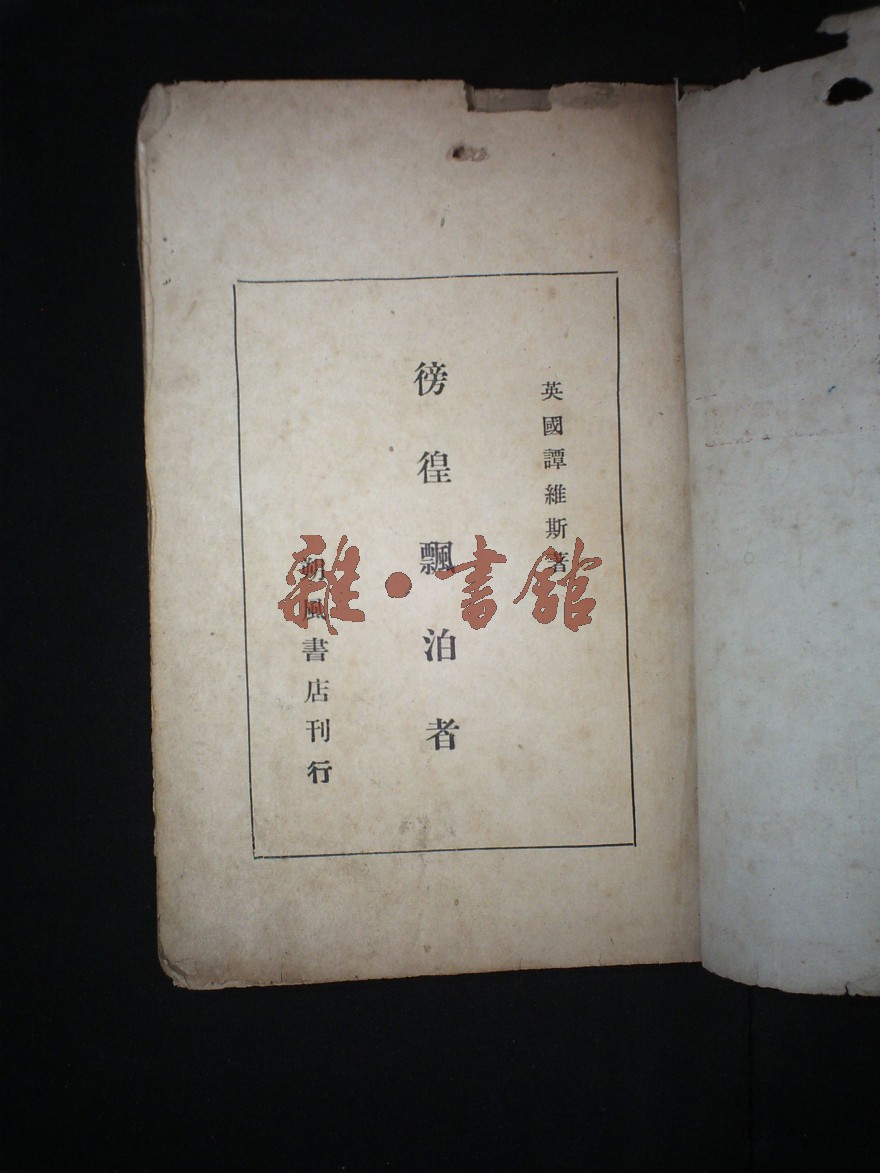 英國譚維斯著
徬徨飄泊者
朔風書店刊行
雜·書館